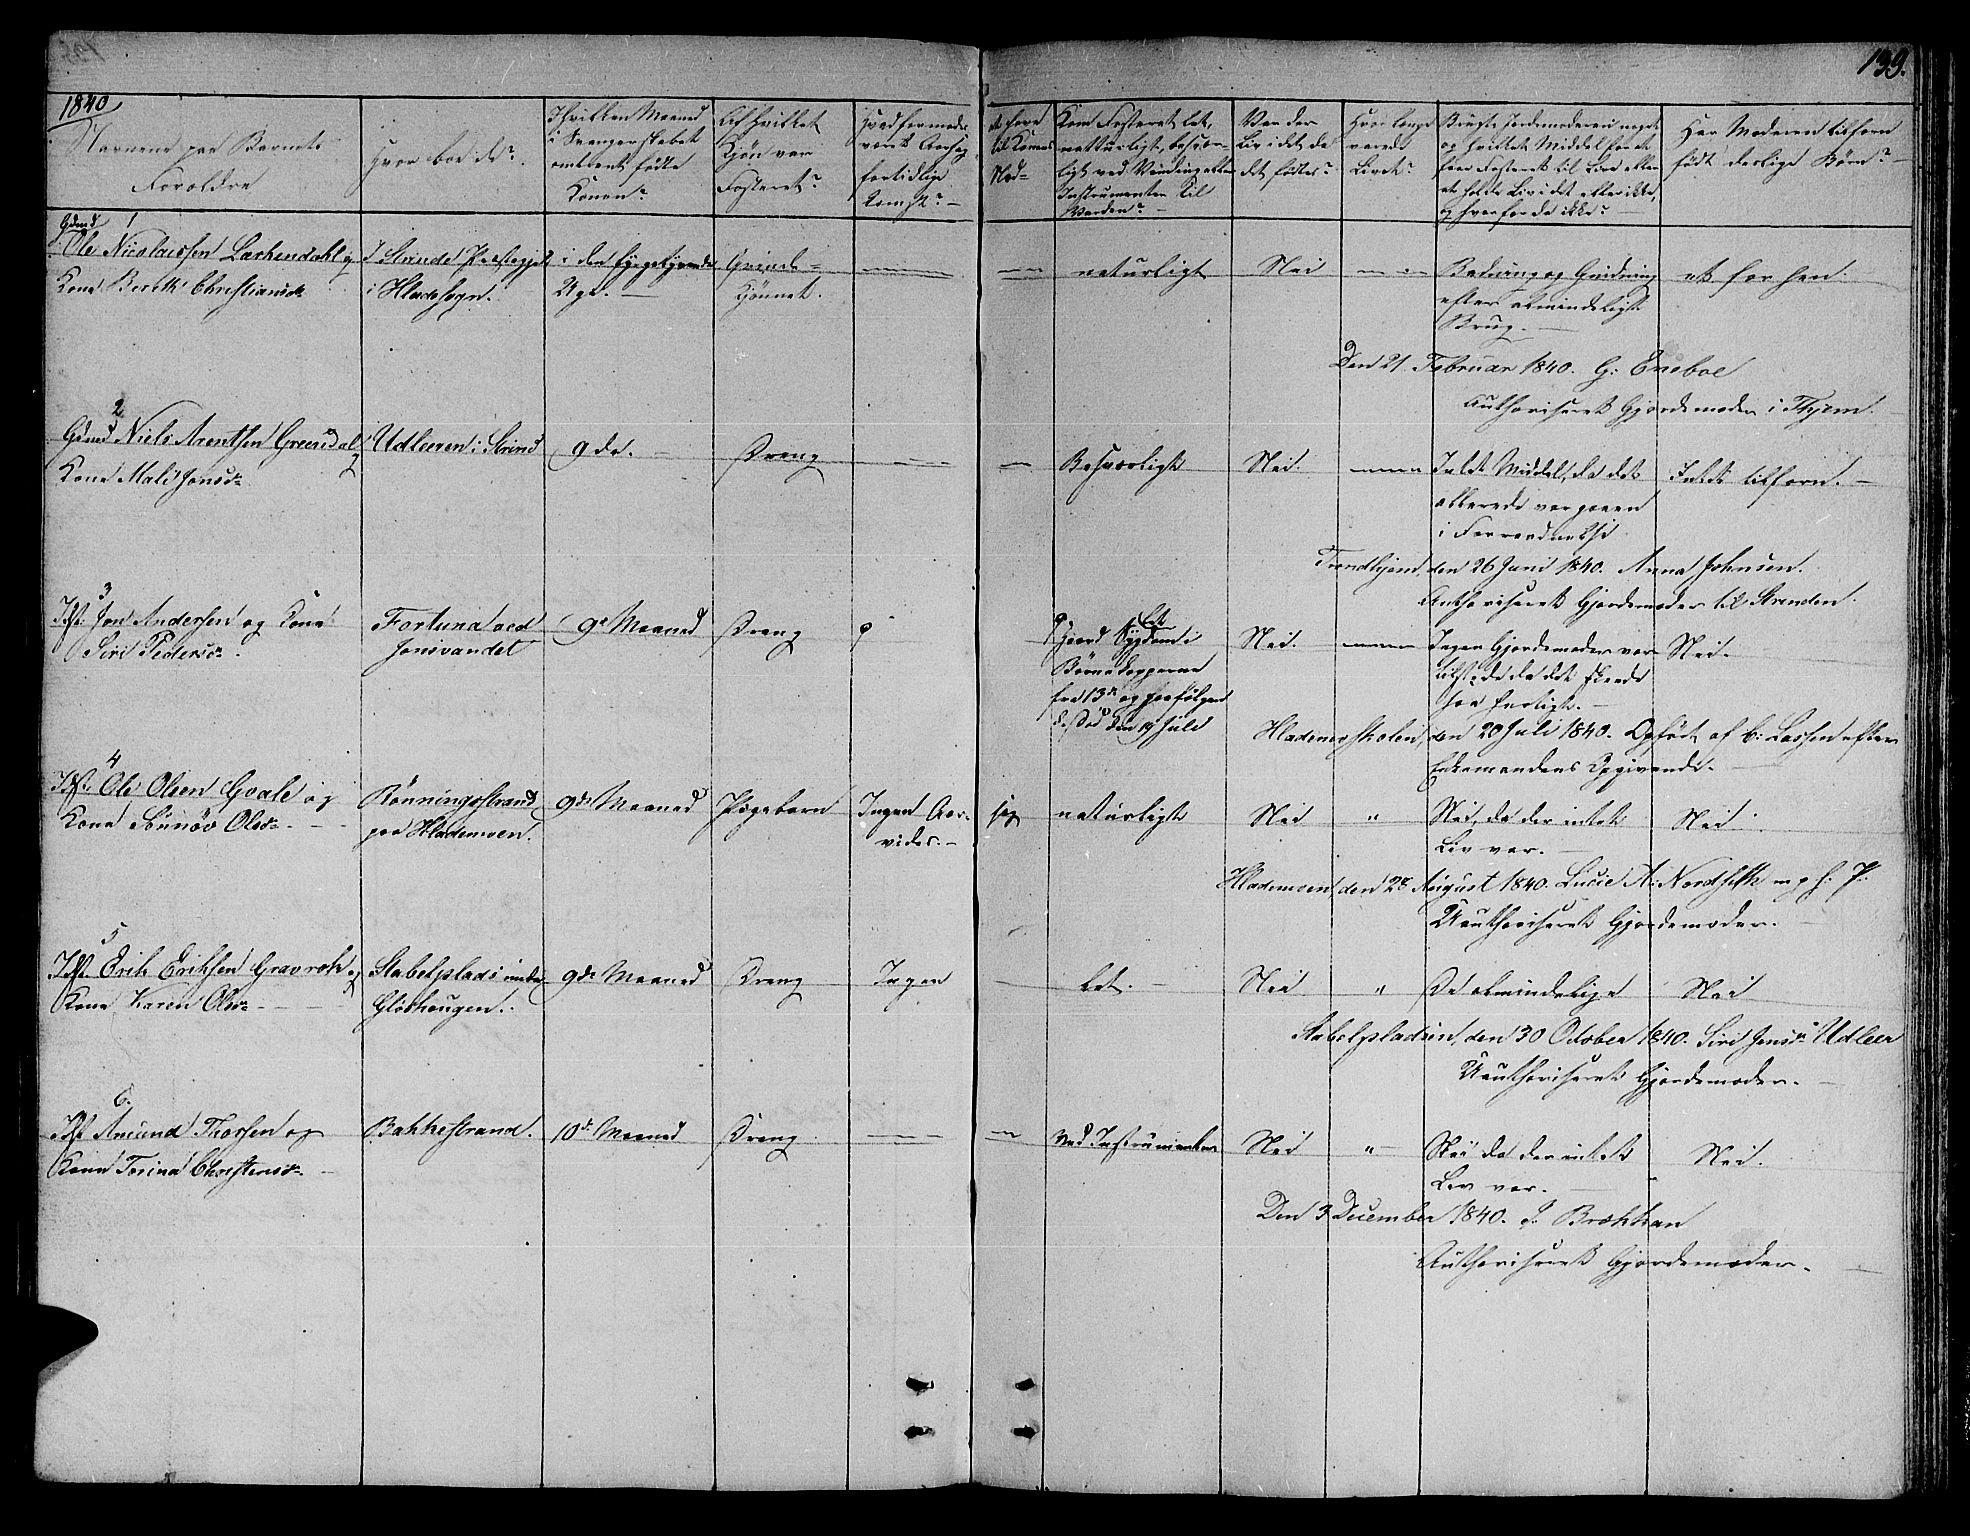 139.
1840
Navnene paa Barnets
Forældre
Hvor boe de?
I hvilken Maaned
i Svangerskabet
omtrent fødte
Konen?
Af hvilket
Kjøn var
Fosteret?
Hvad formodes
været Aarsag
fortidlige
Komst?
at have
til Konens
Nød
Kom Fosteret let,
naturligt, besvær-
ligt ved Vending eller
Instrumenter til
Verden?
Var der
Liv i det da
det fødtes?
Hvor længe
varede
Livet?
Brugte Jordemoderen noget
og hvilket Middel for at
faae Fosteret til Live eller
at holde Liv i det eller ikke,
og hvorfor da ikke?
Har Moderen tilforn
født deslige Børn?
1
Gdmd
Ole Nicolaissen Lerkendahl og
Kone Berit Christiansd.
I Strinde Præstegjeld
i Hlade Sogn.
i den fyrgetyvende
Uge.
Qvinde-
Kjønnet.
naturligt
Nei
Badning og Gnidning
efter almindeligt
Brug.
et for hen.
Den 21 Februar 1840. G: Eneboe
Authoriseret Gjordemoder i Thjem.
2
Gdmd Niels Arentsen Greendal og
Kone Mali Jonsd.
Udleeren i Strind
9de.
Dreng
Besværligt
Nei.
Intet Middel, da det
allerede var gaaen
i Forraadnelse
Intet tilforn.
Trondhjem, den 26 Juni 1840. Anna Johnsen.
Authoriseret Gjordemoder til Strinden.
3
Ihst: Jon Andersen og Kone
Siri Pedersd.
Fortuna ved
Jonsvandet
9de Maaned
Dreng
?
? Let
Haard Sygdom i
Børnekopperne
fra 13de og paafølgen
de Død den 19 Juli
Nei.
Ingen Gjordemoder var
tilstede da det skeede
saa hastigt.
Nei.
Hlademoeskolen, den 20 Juli 1840. Opført af C: Lassen efter
Enkemandens Opgivende.
4
Ihst: Ole Olsen Qvale og
Kone Sünnöv Olsd.
Rönningsstrand
paa Hlademoen.
9de Maaned
Pigebarn
Ingen Aar-
vides.
sag
naturligt
Nei
"
Nei, da der intet
Liv var.
Nei
Hlademoen, den 28 August 1840. Lucie A: Nordseth m.p.h. P:
Uauthoriseret Gjordemoder.
5
Ihst. Erik Eriksen Gravrok og
Kone Karen Olsd.
Stabelplads under
Glöshaugen.
9de Maaned
Dreng
Ingen
let.
Nei
"
De almindelige
Nei
Stabelpladsen, den 30 October 1840. Siri Jonsd. Udleer
Uauthoriseret Gjordemoder.
6.
Ihst Amund Thorsen og
Kone Torina Chrstensd.
Bakkestrand.
10de Maaned
Dreng
ved Instrumenter
Nei
"
Nei da der intet
Liv var.
Nei.
Den 3 December 1840. J. Brækkan
Authoriseret Gjordemoder.